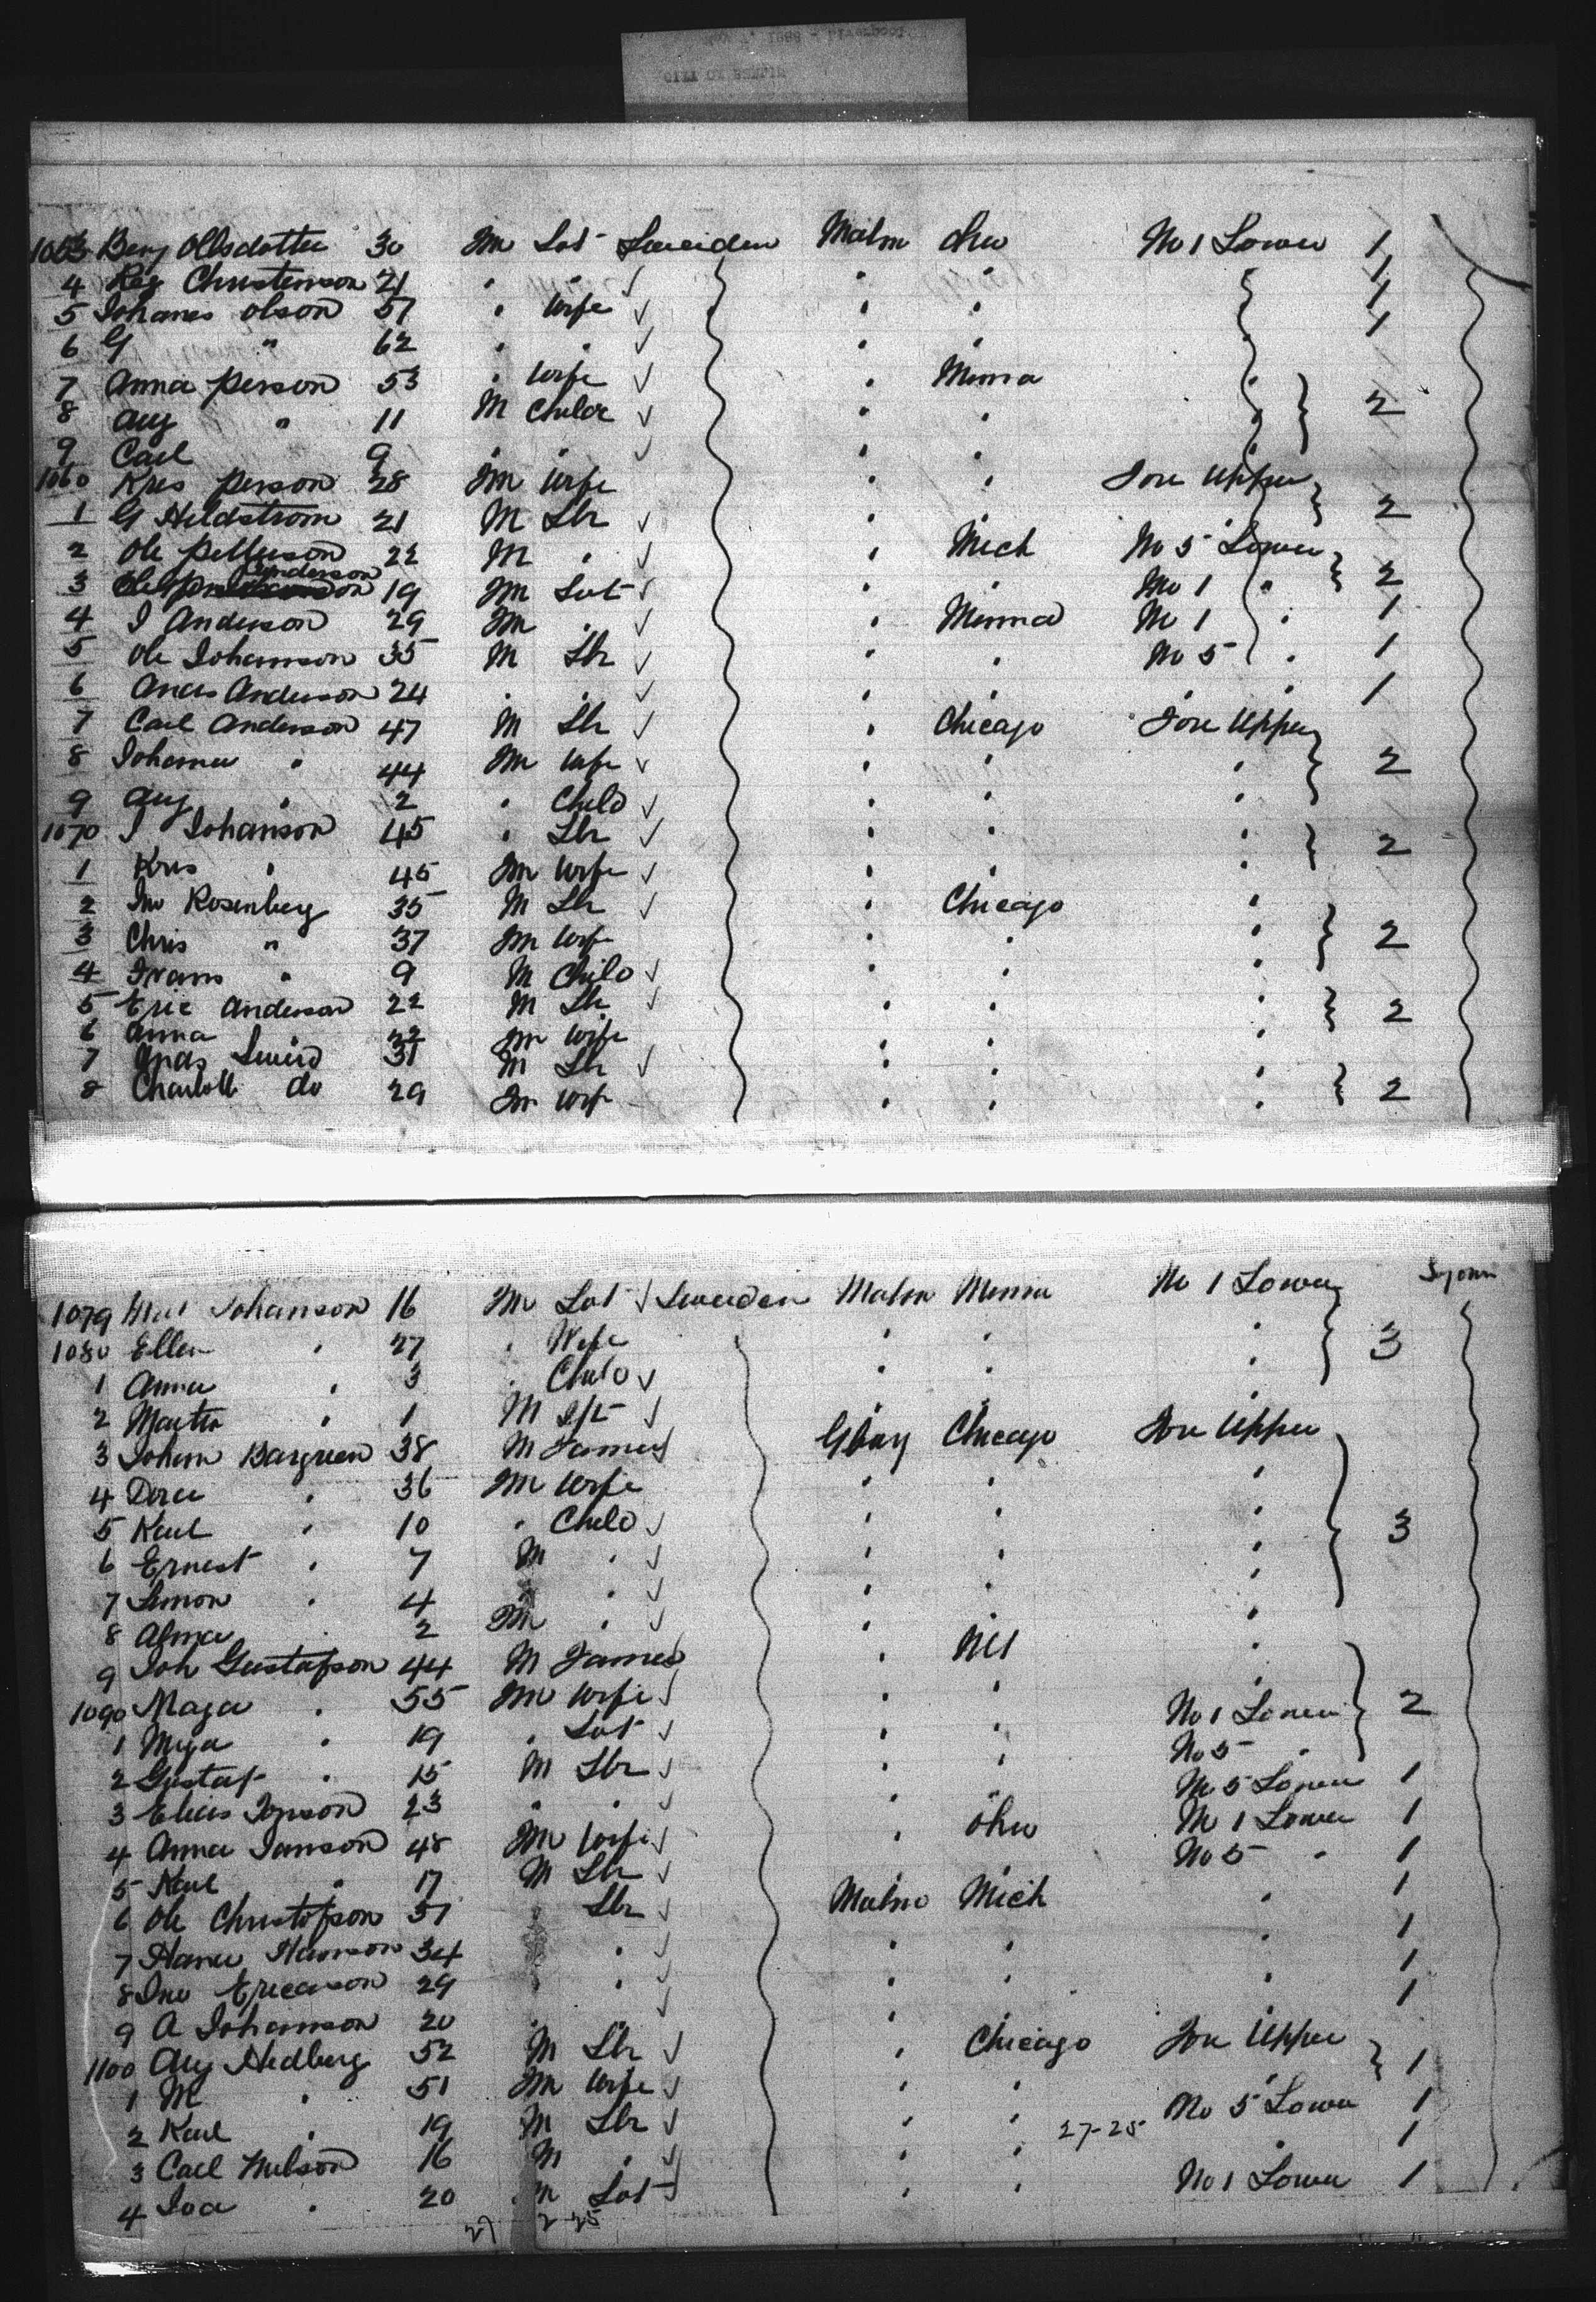 CITY OF BERLIN
1053 Beng Ollsdotter 30 Fm Lab Sweeden Malm Ohio No 1 Lower 1
4 Christenson 21 " " " " 1
5 Johanes Olson 57 " Wife " " 1
6 G " 62 " " " " 1
7 Anna Person 53 " Wife " Minna "
8 Aug " 11 M Child " " " 2
9 Carl 9 " " " " "
1060 Kris Person 28 Fm Wife " " Fore Upper
1 G Hildstrom 21 M Lbr " " " 2
2 Ole Petterson 22 M " " Mich No 5 Lower
3 Anderson 19 Fm Lab " No 1 " 2
4 I Anderson 29 Fm " " Minna No 1 " 1
5 Ole Johanson 35 M Lbr " " No 5 " 1
6 Andes Anderson 24 " " " " " " 1
7 Carl Anderson 47 M Lbr " Chicago Fore Upper
8 Johanna " 44 Fm Wife " " " 2
9 Aug " 2 " Child " " "
1070 J Johanson 45 " Lbr " " "
1 Kris " 45 Fm Wife " " " 2
2 Jno Rosenberg 35 M Lbr " Chicago "
3 Chris " 37 Fm Wife " " " 2
4 Frans " 9 M Child " " "
5 Eric Anderson 22 M Lbr " " " 2
6 Anna 22 Fm Wife " " "
7 Andes 31 M Lbr " " "
8 Charlott do 29 Fm Wife " " " 2
1079 Johanson 16 Fm Lab Sweeden Malm Minna No 1 Lower
1080 Ellen " 27 " Wife " " " 3
1 Anna " 3 " Child " " "
2 Martha " 1 M Ift " " "
3 Johan Bargreen 38 M Farmer Gburg Chicago Fore Upper
4 " 36 Fm Wife " " "
5 Karl " 10 " Child " " " 3
6 Ernest " 7 M " " " "
7 Simon " 4 " " " " "
8 Alma " 2 Fm " " "
9 Joh Gustafson 44 M Farmer " "
1090 Maja " 55 Fm Wife " " "
1 Mija " 19 " Lab " " No 1 Lower 2
2 Gustaf " 15 M Lbr " " No 5 "
3 Elias Jonson 23 " " " " No 5 Lower 1
4 Anna Janson 48 Fm Wife " Ohio No 1 Lower 1
5 Karl " 17 M Lbr " " No 5 " 1
6 Ole Christofson 37 " Lbr Malmo Mich " 1
7 Hanson 34 " " " " 1
8 Jno Ericason 29 " " " " 1
9 A Johanson 20 " " " " 1
1100 Aug Hedberg 52 M Lbr " Chicago Fore Upper
1 M " 51 Fm Wife " " " 1
2 Karl " 19 M Lbr " " No 5 Lower 1
27-25
3 Carl Nilson 16 M " " " " 1
4 Ida " 20 Fm Lab " " No 1 Lower 1
27 2-25